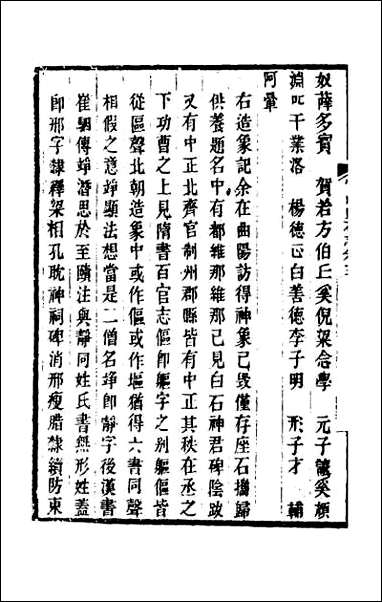 奴薛多賓　賀若方伯丘奚倪粟念學　元子讓奚頎
淵叱干業洛　楊德正白善德李子明　形子才　輔
阿輩
右造象記余在曲陽訪得神象已毀僅存座石攜歸
供養題名中有都維那維那已見白石神君碑陰跋
又有中正北齊官制州郡縣皆有中正其秩在丞之
下功曹之上見隋書百官志傴即軀字之别軀傴皆
從區聲北朝造象中或作傴或作塸猶得六書同聲
相假之意竫顯法想當是二僧名竫即靜字後漢書
崔駰傳竫潛思於至賾法與靜同姓氏書無形姓蓋
即邢字隸釋梁相孔耽神祠碑消邢瘦腊隸續防東